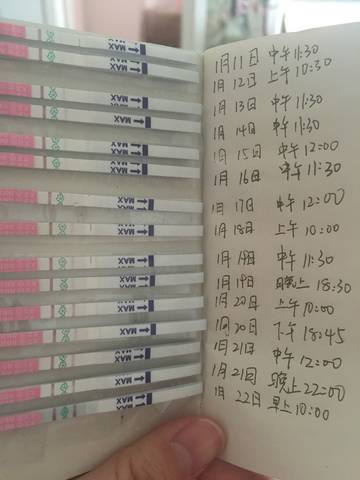 1月11日 中午11:30
1月12日 上午10:30
1月13日 中午11:30
1月14日 中午11:30
1月15日 中午12:00
1月16日 中午11:30
1月17日 中午12:00
1月18日 上午10:00
1月19日 中午11:30
1月19日 晚上18:30
1月20日 上午10:00
1月20日 下午18:45
1月21日 中午12:00
1月21日 晚上22:00
1月22日 早上10:00
MAX
MAX
MAX
MAX
MAX
MAX
MAX
MAX
MAX
MAX
MAX
MAX
MAX
MAX
MAX